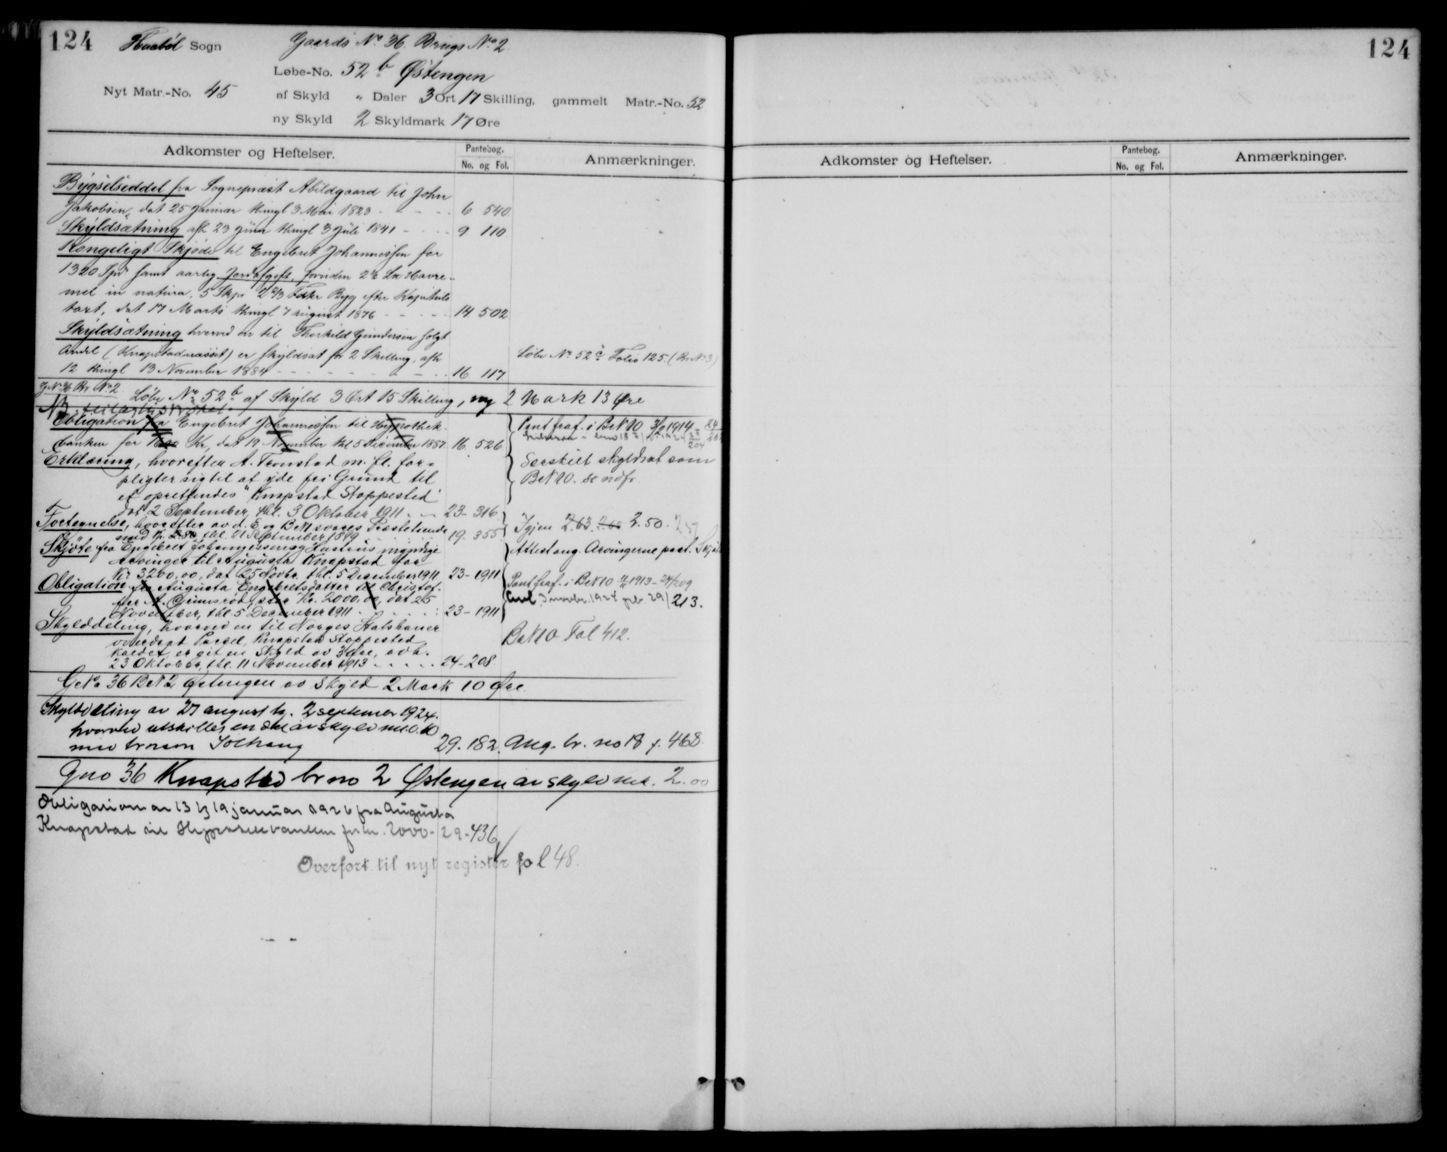 124
Haabøl Sogn
Gaards No 36. Brugs No 2
Løbe-No. 52 b Østengen
Nyt Matr.-No. 45
af Skyld " Daler 3 Ort 17 Skilling, gammelt Matr.-No. 52
ny Skyld 2 Skyldmark 17 Øre
Adkomster og Heftelser.
Pantebog.
No. og Fol.
Anmærkninger.
Bygselseddel fra Sognepræst Abildgaard til John
Jakobsen, dat 25 Januar thingl 3 Mai 1823 - - - - 6 540
Skyldsætning afh 23 Juni thingl 3 Juli 1841 - - - - 9 110
Kongeligt Skjøde til Engebret Johannessen for
1320 Spd samt aarlig Jordafgift, foruden 2 Lø Havre-
mel in natura, 5 Skp 2 Fdkr Byg efter Kapitels
taxt, dat 17 Marts thingl 7 August 1876 - - - - 14 502
Skyldsætning hvorved en til Therkild Gundersen solgt
Andel (Knapstadmasset) er skyldsat for 2 Skilling, afh
12 thingl 13 November 1884 - - - - 16 117
Løbe No 52 c Folio 125 (Br No 3)
G No 36 Br No 2 Løbe No 52 b af Skyld 3 Ort 15 Skilling, ny 2 Mark 13 Øre
Obligation fra Engebret Johannessen til Hypothek-
banken for Kr, dat 19 November thl 5 December 1887 16. 526
Pantfraf. i BrN 10 1914
Erklæring, hvorefter A. Tronstad m. fl. for-
pligter sig til at yde fri Grund til
et oprettendes "Knapstad Stoppested"
dat 2 September, thl. 3 Oktober 1911 - - 23 - 316
Særskilt skyldsat som
BrN 10. se nedf.
Fortegnelse, hvorefter av d. E og BrN svares Præstetiende
med Kr. 2.80, thl. 21 September 1899 - - - 19. 355
Igjen 2.63 2.50.
Skjøte fra Engebret Johannessens og Hustrus myndige
Arvinger til Augusta Knapstad for
Kr. 3200.00, dat 25 Novbr, thl. 5 December 1911. 23 - 1911
Attest ang. Arvingerne paat. Skjøtet
Obligation fra Augusta Engebretsdatter til Christof-
fer A. Grimsrød, stor Kr. 2000.00, dat 25
November, thl. 5 December 1911 - - - - 23 - 1911
Pantfraf. i BrN 10 1913 - 24/209
213.
Skylddeling, hvorved en til Norges Statsbaner
overdrat Parcel, Knapstad Stoppested
kaldet, er git en Skyld av 3 øre, avh.
23 Oktober, thl. 11 November 1913 - - - - 24 - 208
BrN 10 Fol 412.
GNo 36 BrN 2 Østengen av Skyld 2 Mark 10 Øre.
Skylddeling av 27 august tg. 2 septemer 1924.
hvorved utskilles en del av skyld mk. 0.10
med brnavn Solhaug 29. 182. Ang. br. no 18 f. 468
Gno 36 Knapstad br no 2 Østengen av skyld mk. 2.00
Obligation av 13 tg 19 januar 1926 fra Augusta
Knapstad til Hypotekbanken for kr. 2000 - 29 - 436
Overført til nyt register fol 48.
124
Adkomster og Heftelser.
Pantebog.
No. og Fol.
Anmærkninger.